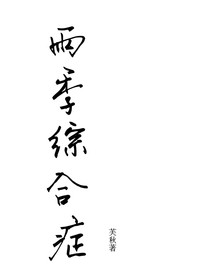 雨季綜合症
芙秋著